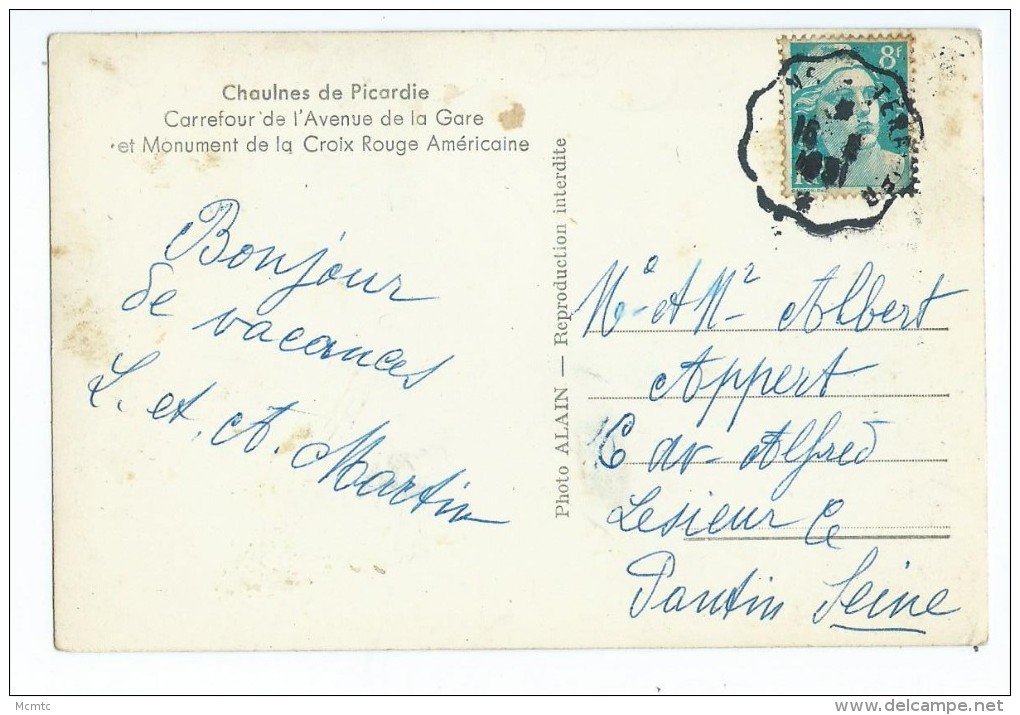 Chaulnes de Picardie
Carrefour de l'Avenue de la Gare
et Monument de la Croix Rouge Américaine
8f
Bonjour
de vacances
L. et A. Martin
Photo ALAIN — Reproduction interdite
Albert
Appert
av- Alfred
Lesieur
Pantin Seine
Mcmtc
www.delcampe.net